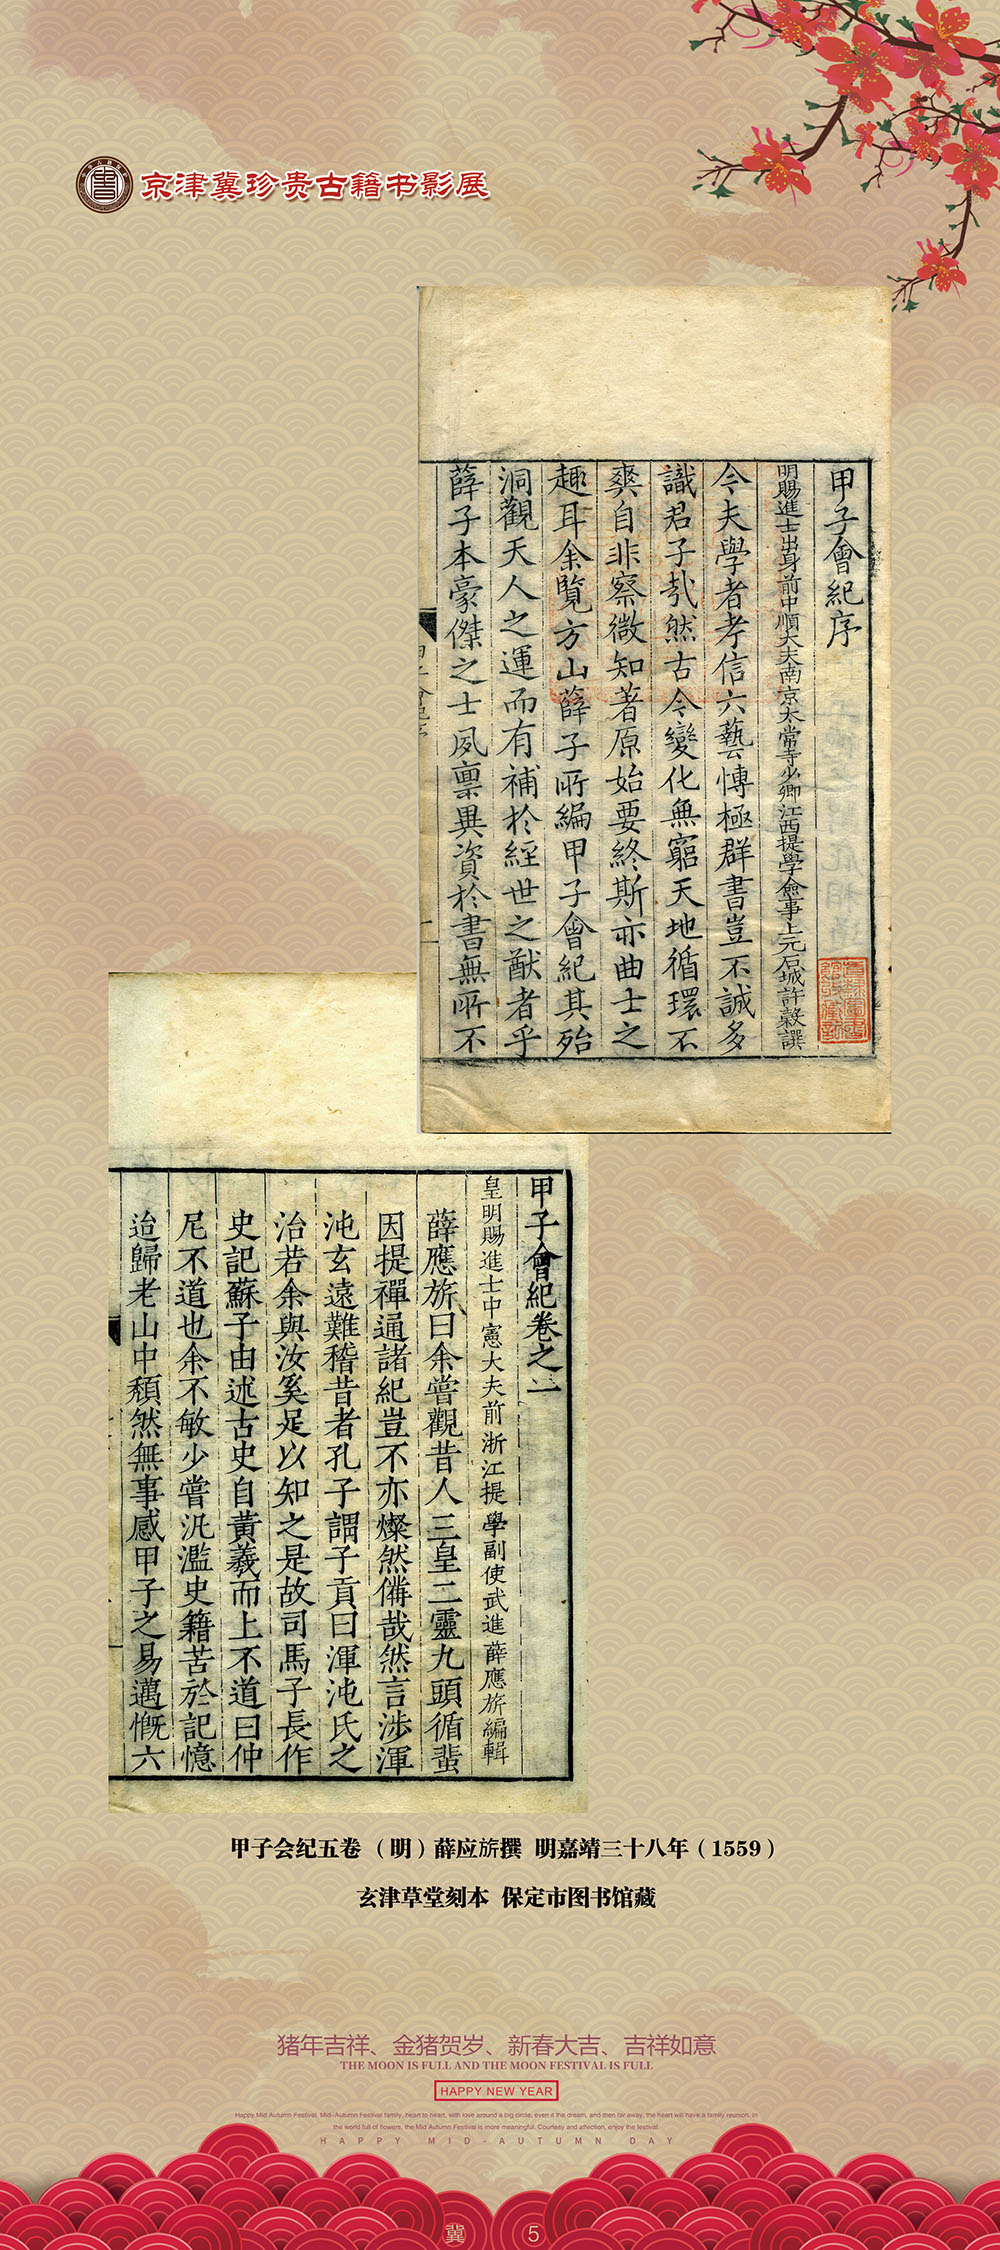 京津冀珍贵古籍书影展
甲子會紀序
明賜進士出身前中順大夫南京太常寺少卿江西提學僉事上元石城許穀譔
今夫學者考信六藝愽極群書豈不誠多
識君子㢤然古今變化無窮天地循環不
爽自非察微知著原始要終斯亦曲士之
趣耳余覽方山薛子所編甲子會紀其殆
洞觀天人之運而有補於經世之猷者乎
薛子本豪傑之士夙禀異資於書無所不
甲子會紀卷之一
皇明賜進士中憲大夫前浙江提學副使武進薛應旂編輯
薛應旂曰余嘗觀昔人三皇二靈九頭循蜚
因提禪通諸紀豈不亦燦然備哉然言涉渾
沌玄遠難稽昔者孔子謂子貢曰渾沌氏之
治若余與汝奚足以知之是故司馬子長作
史記蘇子由述古史自黃羲而上不道曰仲
尼不道也余不敏少嘗汎濫史籍苦於記憶
迨歸老山中頹然無事感甲子之易邁慨六
甲子会纪五卷 （明）薛应旂撰 明嘉靖三十八年（1559）
玄津草堂刻本 保定市图书馆藏
猪年吉祥、金猪贺岁、新春大吉、吉祥如意
THE MOON IS FULL AND THE MOON FESTIVAL IS FULL
HAPPY NEW YEAR
Happy Mid Autumn Festival, Mid-Autumn Festival family, heart to heart, with love around a big circle, even if the dream, and then far away, the heart will have a family reunion. In
the world full of flowers, the Mid Autumn Festival is more meaningful. Courtesy and affection, enjoy the festival.
HAPPY MID-AUTUMN DAY
冀 5